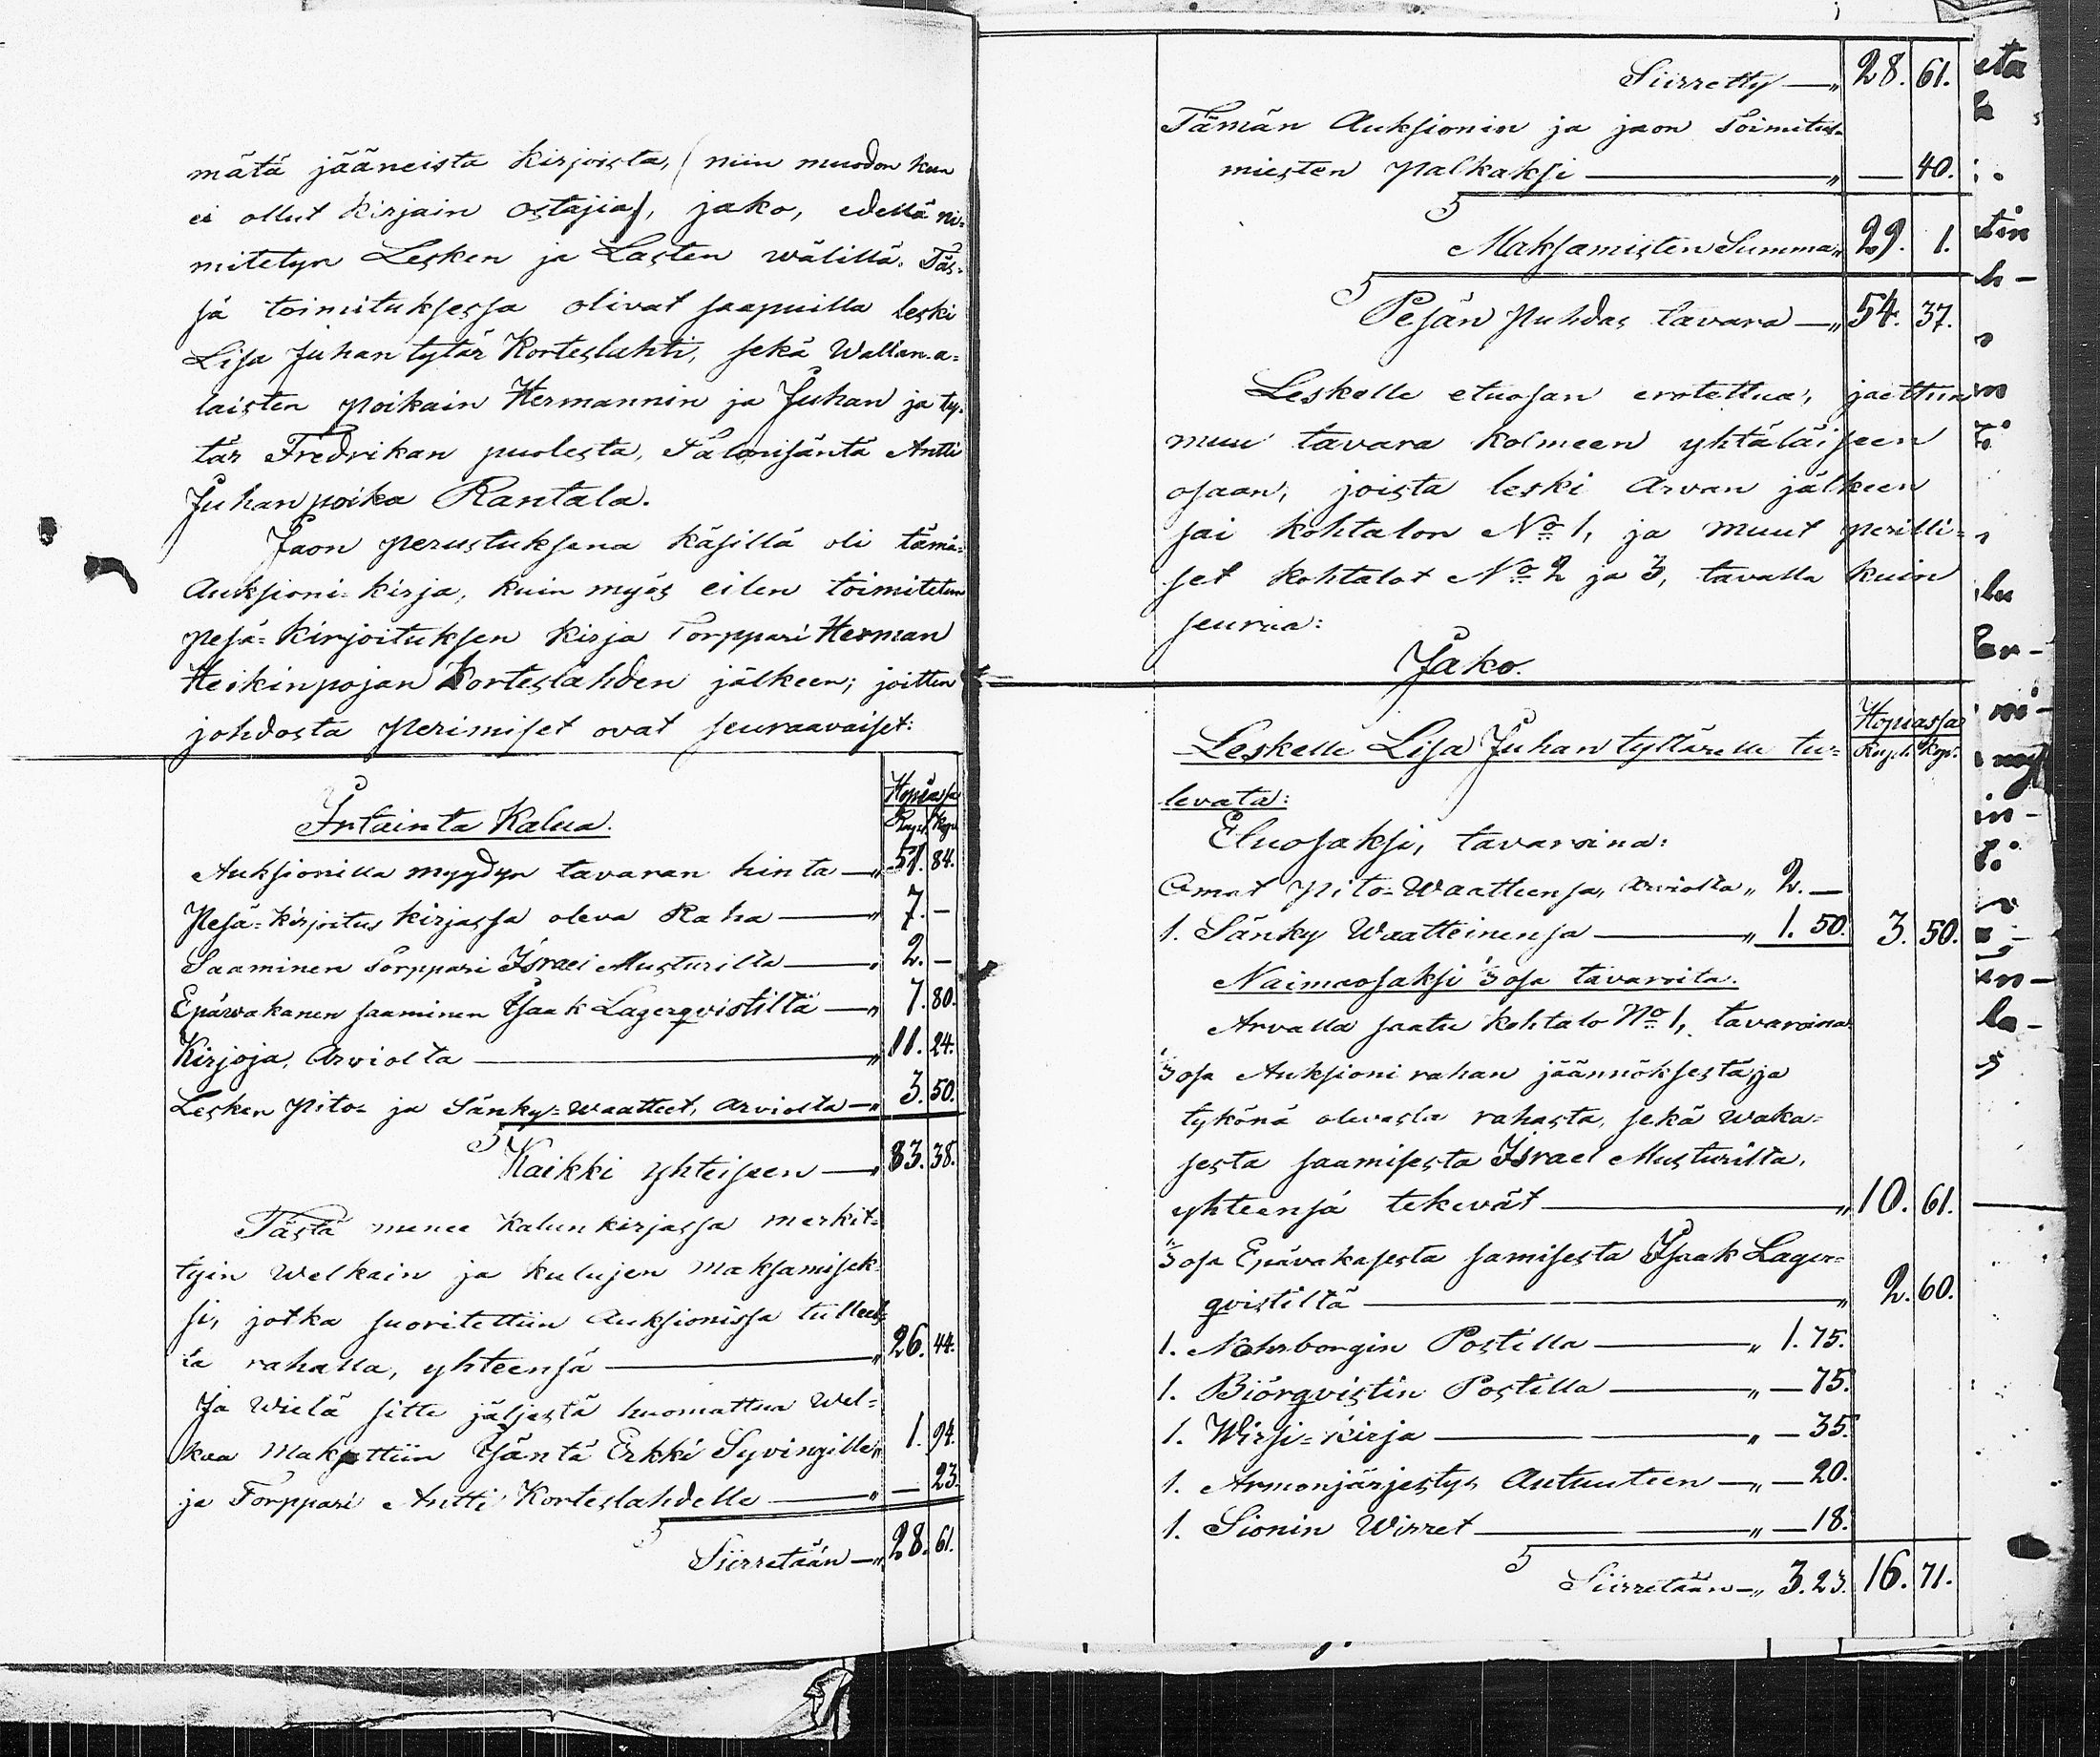 mätä jääneista kirjoista, (niin muodon kun
ei ollut kirjain ostajia), jako, edellä ni-
mitetyn Lesken ja Lasten wälillä. Täs-
sä toimituksessa olivat saapuilla leski
Lisa Juhan tytär Korteslahti, sekä Wallan-a-
laisten poikain Hermannin ja Juhan ja ty-
tär Fredrikan puolesta, Talonisäntä Antti
Juhanpoika Rantala.
Jaon perustuksena käsillä oli tämä
Auksioni-kirja, kuin myös eilen toimitetun
pesä-kirjoituksen kirja Torppari Herman
Heikinpojan Korteslahden jälkeen; joitten
johdosta perimiset ovat seuraavaiset:
Hopiassa
Irtainta Kalua. Rupl. Kop.
Auksionilla myydyn tavaran hinta — „ 51. 84.
Pesä-kirjoitus kirjassa oleva Raha — „ 7. —
Saaminen Torppari Israel Musturilta — „ 2. —
Epävakanen saaminen Isaak Lagerqvistiltä — „ 7. 80.
Kirjoja, Arviolta — „ 11. 24.
Lesken pito- ja Sänky-waatteet, arviolta — „ 3. 50.
S Kaikki yhteiseen — „ 83. 38.
Tästä menee kalunkirjassa merkit-
tyin Welkain ja kulujen maksamisek-
si, jotka suoritettiin Auksionissa tulleel-
la rahalla, yhteensä — „ 26. 44.
Ja Wielä sitte jäljestä huomattua Wel-
kaa maksettiin Isäntä Erkki Syvingille „ 1. 94.
ja Torppari Antti Korteslahdelle — „ — 23.
S Siirretään — „ 28. 61.
Siirretty — „ 28. 61.
Tämän Auksionin ja jaon Toimitus-
miesten palkaksi — „ — 40.
S Maksamisten Summa „ 29. 1.
S Pesän puhdas tavara — „ 54. 37.
Leskelle etuosan erotettua, jaettiin
muu tavara kolmeen yhtäläiseen
osaan, joista leski Arvan jälkeen
sai kohtalon No 1, ja muut perilli-
set kohtalot No 2 ja 3, tavalla kuin
seuraa:
Jako.
Hopiassa
Leskelle Lisa Juhan tyttärelle tu- Rupl. Kop.
levata:
Etuosaksi, tavaroina:
Omat pito-Waatteensa, arviolta „ 2. —
1. Sänky Waatteinensa — „ 1. 50. 3. 50.
Naimaosaksi 1/3 osa tavaroita.
Arvalla saatu kohtalo No 1, tavaroina
1/3 osa Auksioni rahan jäännöksestä, ja
tykönä olevasta rahasta, sekä waka-
sesta saamisesta Israel Musturilta,
yhteensä tekevät — „ 10. 61.
1/3 osa Epävakasesta samisesta Isaak Lager-
qvistiltä — „ 2. 60.
1. Nohrborgin Postilla — „ 1. 75.
1. Biörqvistin Postilla — „ — 75.
1. Wirsi-kirja — „ — 35.
1. Armonjärjestys Autuuteen — „ — 20.
1. Sionin Wirret — „ — 18.
S Siirretään — „ 3. 23. 16. 71.